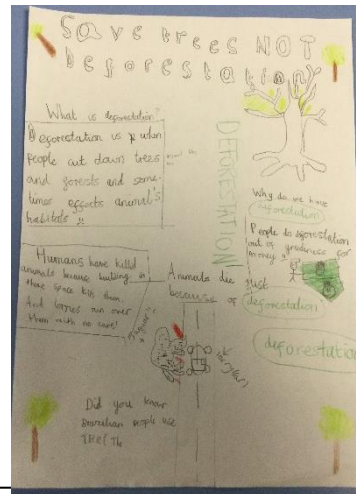 Save trees NOT
Deforestation
What is deforestation?
Deforestation is when
people cut down trees
and forests and some-
times effects animal's
habitats
DEFORESTATION
Why do we have
deforestation
People do deforestation
out of greediness for
money
Humans have killed
animals because building in
there space kills them.
And lorries run over
them with no care!
Animals die just
because of
deforestation
deforestation
Did you know
Brazilian people use